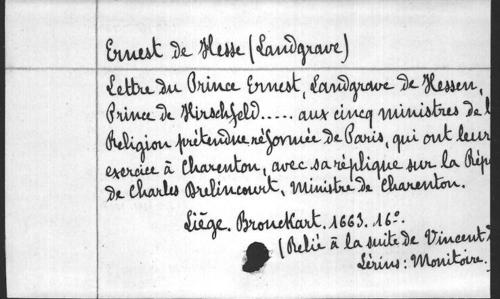 Ernest de Hesse (Landgrave)
Lettre du Prince Ernest, Landgrave de Hessen,
Prince de Hirschfeld..... aux cinq ministres de l
Religion prétendue réformée de Paris, qui ont leur
exercice à Charenton, avec sa réplique sur la Rép
de Charles Drelincourt, Ministre de Charenton.
Liége. Bronckart. 1663. 16º.
(Relié à la suite de Vincent
Lérins: Monitoire.